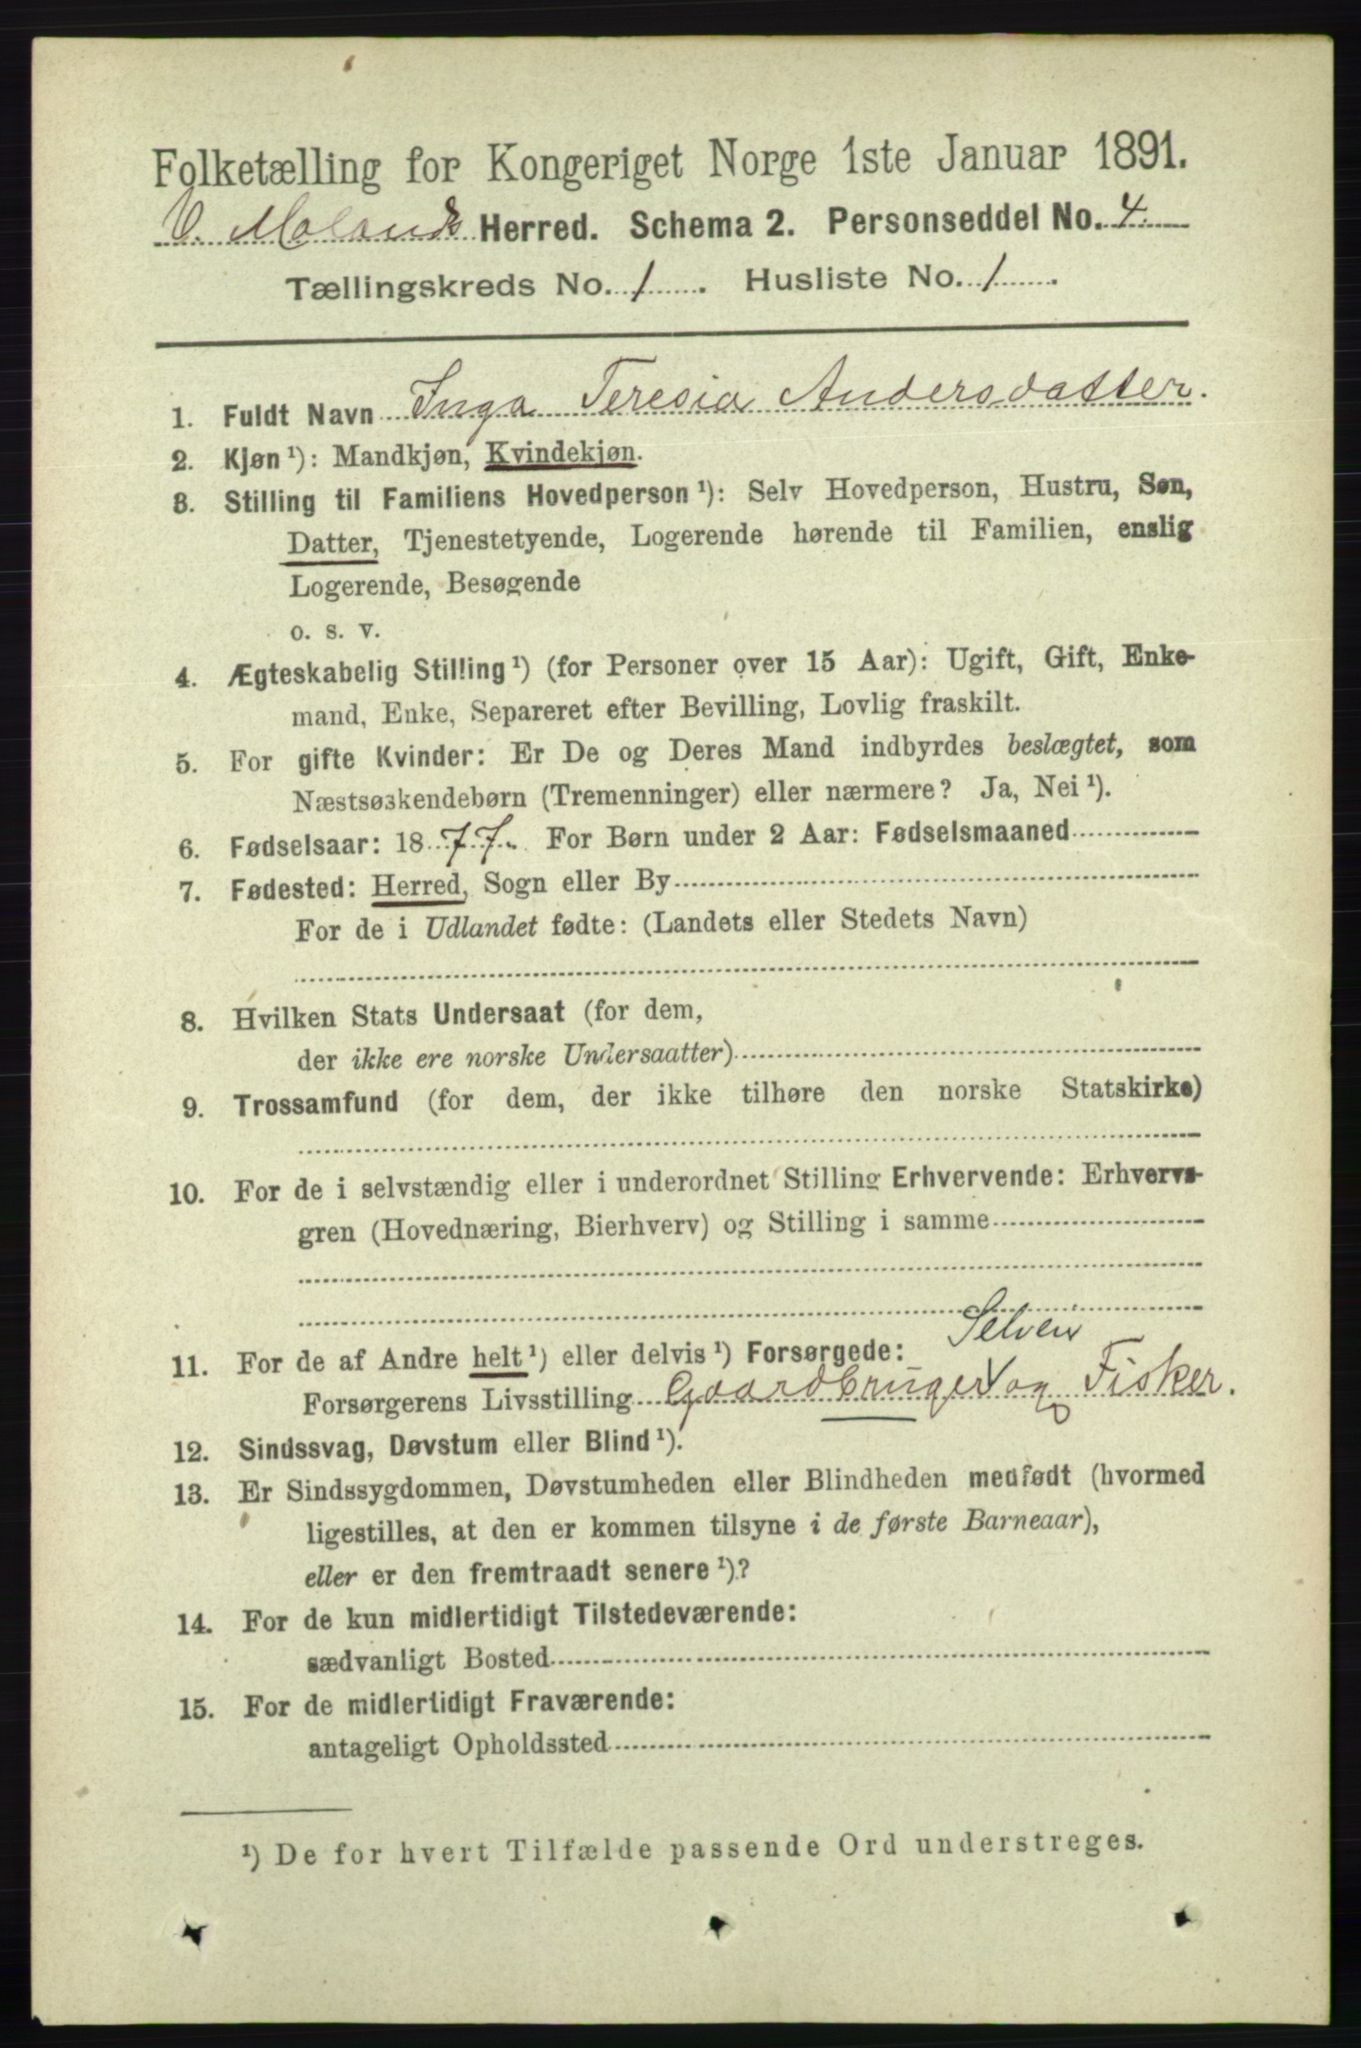 Folketælling for Kongeriget Norge 1ste Januar 1891.
V. Molands Herred. Schema 2. Personseddel No. 4.
Tællingskreds No. 1. Husliste No. 1.
1. Fuldt Navn Inga Teresia Andersdatter.
2. Kjøn ¹): Mandkjøn, Kvindekjøn.
3. Stilling til Familiens Hovedperson ¹): Selv Hovedperson, Hustru, Søn,
Datter, Tjenestetyende, Logerende hørende til Familien, enslig
Logerende, Besøgende
o. s. v.
4. Ægteskabelig Stilling ¹) (for Personer over 15 Aar): Ugift, Gift, Enke-
mand, Enke, Separeret efter Bevilling, Lovlig fraskilt.
5. For gifte Kvinder: Er De og Deres Mand indbyrdes beslægtet, som
Næstsøskendebørn (Tremenninger) eller nærmere? Ja, Nei ¹).
6. Fødselsaar: 1877. For Børn under 2 Aar: Fødselsmaaned
7. Fødested: Herred, Sogn eller By
For de i Udlandet fødte: (Landets eller Stedets Navn)
8. Hvilken Stats Undersaat (for dem,
der ikke ere norske Undersaatter)
9. Trossamfund (for dem, der ikke tilhøre den norske Statskirke)
10. For de i selvstændig eller i underordnet Stilling Erhvervende: Erhvervs-
gren (Hovednæring, Bierhverv) og Stilling i samme
Selveir
11. For de af Andre helt ¹) eller delvis ¹) Forsørgede:
Forsørgerens Livsstilling Gaardbruger V og Fisker.
12. Sindssvag, Døvstum eller Blind ¹).
13. Er Sindssygdommen, Døvstumheden eller Blindheden medfødt (hvormed
ligestilles, at den er kommen tilsyne i de første Barneaar),
eller er den fremtraadt senere ¹)?
14. For de kun midlertidigt Tilstedeværende:
sædvanligt Bosted
15. For de midlertidigt Fraværende:
antageligt Opholdssted
¹) De for hvert Tilfælde passende Ord understreges.